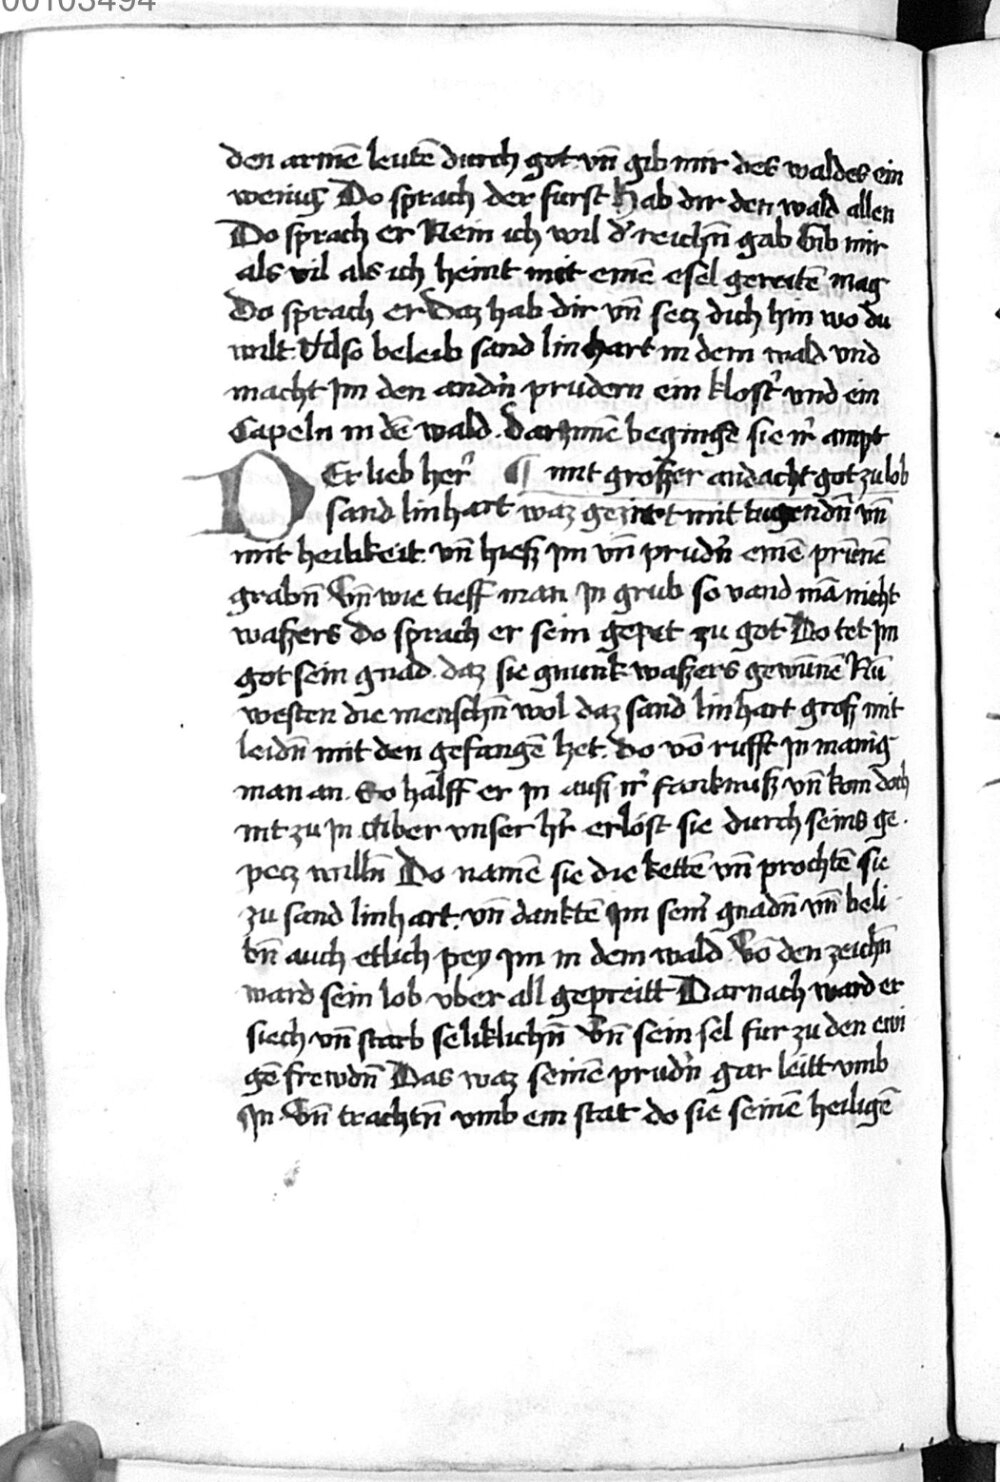 00103494
den armē leutē durch got vn̄ gib mir des waldes ein
wenig Do sprach der furst Hab dir den wald allen
Do sprach er Nein ich wil d' reichn̄ gab Gib mir
als vil als ich heint mit einē esel gereitē mag
Do sprach er Daz hab dir vn̄ secz dich hin wo du
wilt Also beleib sand linhart in dem wald vnd
macht Im den andn̄ prudern ein klost' vnd ein
Capeln in dē wald. darinnē begingē sie ir ampt
¶ mit grosser andacht got zu lob
DEr lieb her'
sand linhart waz geziert mit tugendn̄ vn̄
mit heilikeit. vn̄ hiesz im vn̄ prudn̄ einē prūnē
grabn̄ Vn̄ wie tieff man In grub so vand mā nicht
waszers do sprach er sein gepet zu got Do tet Im
got sein gnad. daz sie gnunk waszers gewūnē Nū
westen die menschn̄ wol daz sand linhart grosz mit
leidn̄ mit den gefangē het. do vō rufft In manig
man an. So halff er In ausz ir' fanknusz vn̄ kom doch
nit zu In Aber vnser h'r erlöst sie durch seins ge
pecz willn̄ Do namē sie die kettē vn̄ prochtē sie
zu sand linhart. vn̄ danktē Im sein' gnadn̄ vn̄ beli
bn̄ auch etlich pey Im in dem wald Vō den zeichn̄
ward sein lob vber all gepreitt Darnach ward er
siech vn̄ starb seliklichn̄ Vn̄ sein sel fur zu den ewi
gē frewdn̄ Das waz seinē prudn̄ gar leitt vmb
In. Vn̄ trachtn̄ vmb ein stat do sie seinē heiligē